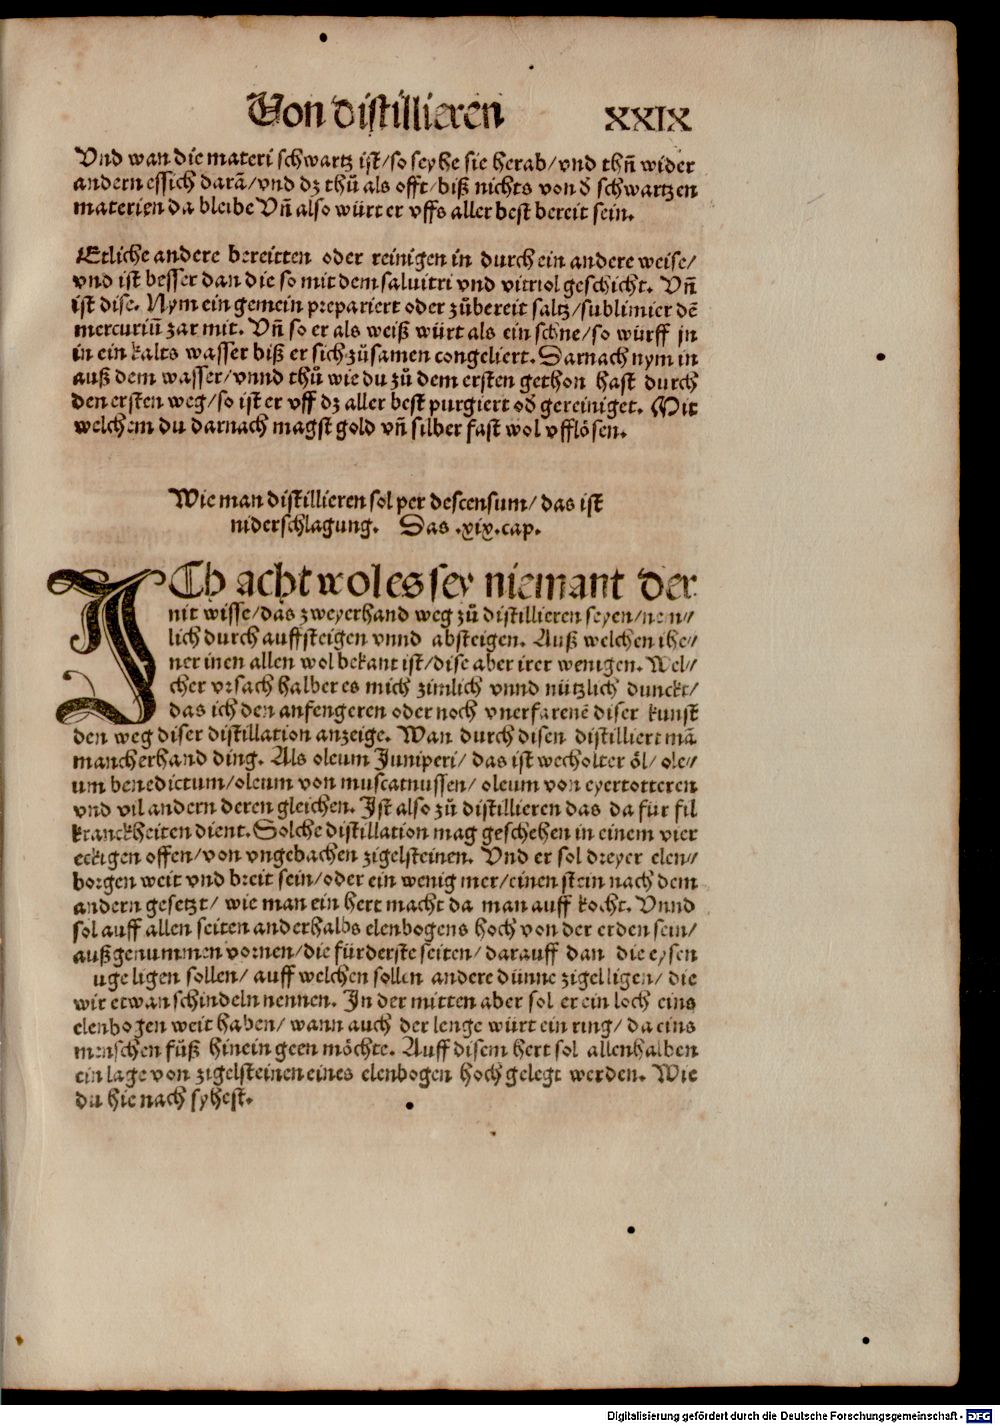 Von distillieren XXIX
Vnd wan die materi schwartz ist/so seyhe sie herab/vnd thuͦ wider
andern essich darā/vnd dz thuͦ als offt/biß nichts von đ schwartzen
materien da bleibe Vñ also würt er vffs aller best bereit sein.
Etliche andere bereitten oder reinigen in durch ein andere weise/
vnd ist besser dan die so mit dem saluitri vnd vitriol geschicht. Vñ
ist dise. Nym ein gemein prepariert oder zuͦbereit saltz/sublimier dē
mercuriū zar mit. Vñ so er als weiß würt als ein schne/so würff jn
in ein kalts wasser biß er sich zuͦsamen congeliert. Darnach nym in
auß dem wasser/vnnd thuͦ wie du zuͦ dem ersten gethon hast durch
den ersten weg/so ist er vff dz aller best purgiert ođ gereiniget. Mit
welchem du darnach magst gold vñ silber fast wol vfflösen.
Wie man distillieren sol per descensum/ das ist
niderschlagung. Das .xix. cap.
ICh acht wol es sey niemant der
nit wisse/das zweyerhand weg zuͦ distillieren seyen/nem//
lich durch auffsteigen vnnd absteigen. Auß welchen ihe//
ner inen allen wol bekant ist/dise aber irer wenigen. Wel//
cher vrsach halber es mich zimlich vnnd nützlich dunckt/
das ich den anfengeren oder noch vnerfarenē diser kunst
den weg diser distillation anzeige. Wan durch disen distilliert mā
mancherhand ding. Als oleum Juniperi/ das ist wecholter öl/ ole//
um benedictum/oleum von muscatnussen/ oleum von eyertotteren
vnd vil andern deren gleichen. Ist also zuͦ distillieren das da für fil
kranckheiten dient. Solche distillation mag geschehen in einem vier
eckigen offen/von vngebachen zigelsteinen. Vnd er sol dreyer elen//
bogen weit vnd breit sein/oder ein wenig mer/einen stein nach dem
andern gesetzt/ wie man ein hert macht da man auff kocht. Vnnd
sol auff allen seiten anderhalbs elenbogens hoch von der erden sein/
außgenummen vornen/die fürderste seiten/ darauff dan die eysen
uge ligen sollen/ auff welchen sollen andere dünne zigel ligen/ die
wir etwan schindeln nennen. In der mitten aber sol er ein loch eins
elenbogen weit haben/ wann auch der lenge würt ein ring/ da eins
menschen fuͦß hinein geen möchte. Auff disem hert sol allenhalben
ein lage von zigelsteinen eines elenbogen hoch gelegt werden. Wie
du hie nach syhest.
Digitalisierung gefördert durch die Deutsche Forschungsgemeinschaft - DFG